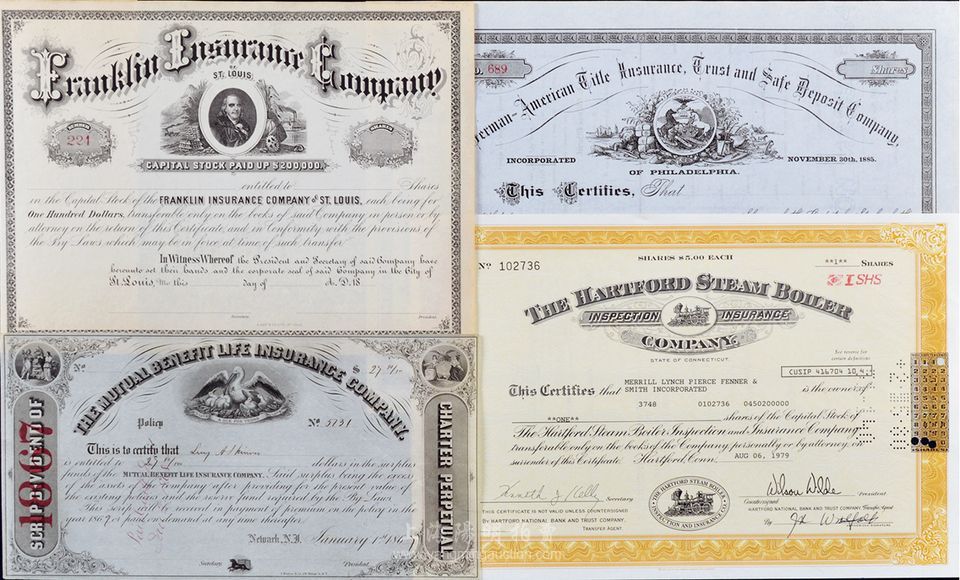 Franklin Insurance Company
OF
ST. LOUIS.
NUMBER
221
SHARES
CAPITAL STOCK PAID UP $200,000.
entitled to Shares
in the Capital Stock of the FRANKLIN INSURANCE COMPANY of ST. LOUIS, each being for
One Hundred Dollars, transferable only on the books of said Company in person or by
attorney on the return of this Certificate and in Conformity with the provisions of
the By Laws which may be in force at time of such transfer.
In Witness Whereof the President and Secretary of said Company have
hereunto set their hands and the corporate seal of said Company in the City of
St. Louis, Mo this day of A.D. 18
Secretary.
President.
689
Shares
German-American Title Insurance, Trust and Safe Deposit Company,
INCORPORATED
NOVEMBER 30th, 1885.
OF PHILADELPHIA.
This Certifies, That
THE MUTUAL BENEFIT LIFE INSURANCE COMPANY.
SCRIP DIVIDEND OF
1867
CHARTER PERPETUAL
No
$ 27
Policy No 5731
This is to certify that
is entitled to dollars in the surplus
funds of the MUTUAL BENEFIT LIFE INSURANCE COMPANY. Said surplus being the excess
of the assets of the Company after providing for the present value of
the existing policies and the reserve fund required by the By Laws
This scrip will be received in payment of premium on the policy in the
year 1867 or paid on demand at any time thereafter.
Newark, N.J. January 1st 186
Secretary
President
SHARES $5.00 EACH
No 102736
**1** SHARES
1 SHS
THE HARTFORD STEAM BOILER
INSPECTION INSURANCE
COMPANY.
STATE OF CONNECTICUT.
See reverse for
certain definitions
CUSIP 416704 10 4
This Certifies that MERRILL LYNCH PIERCE FENNER &
SMITH INCORPORATED is the owner of
3748 0102736 0450200000
**ONE** shares of the Capital Stock of
The Hartford Steam Boiler Inspection and Insurance Company
transferable only on the books of the Company personally or by attorney, on
surrender of this Certificate. Hartford, Conn. AUG 06, 1979
Secretary
President
THE HARTFORD STEAM BOILER
INSPECTION AND INSURANCE CO.
THIS CERTIFICATE IS NOT VALID UNLESS COUNTERSIGNED
BY HARTFORD NATIONAL BANK AND TRUST COMPANY,
TRANSFER AGENT.
Countersigned
HARTFORD NATIONAL BANK AND TRUST COMPANY, Transfer Agent
By
www.yangmingauction.com